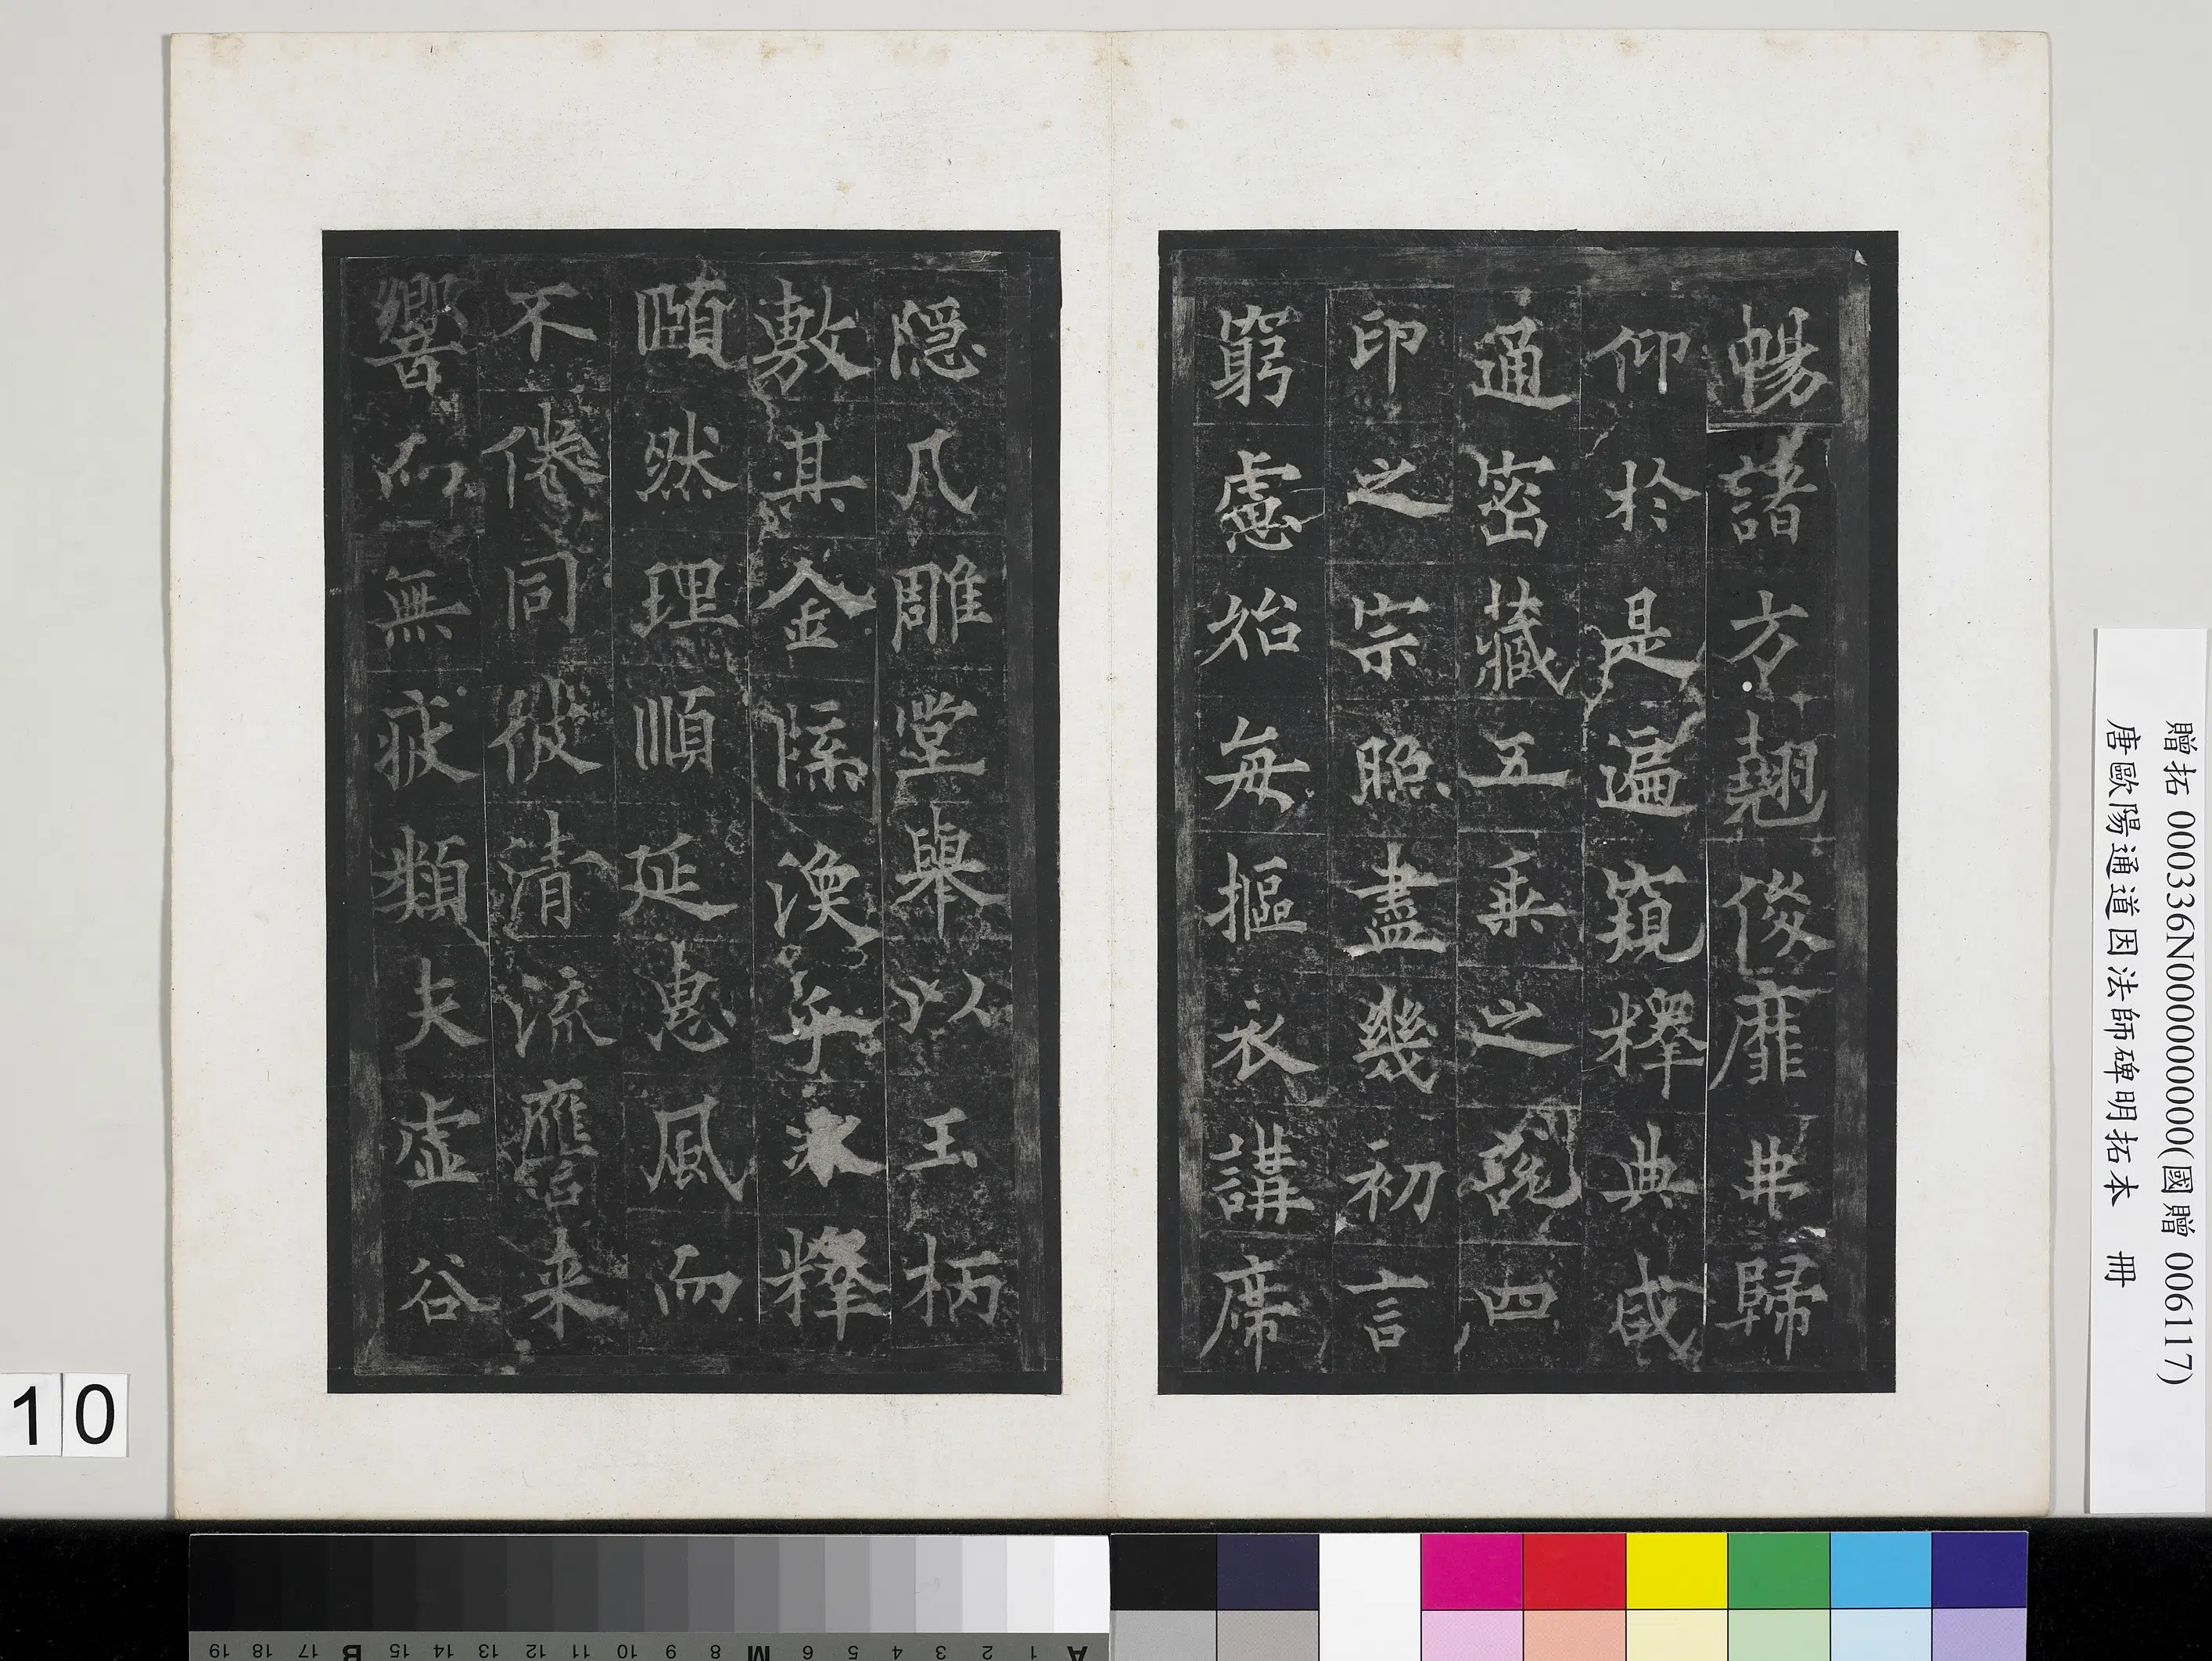 暢諸方翹俊靡弗歸
仰於是遍窺釋典咸
通密藏五乘之說四
印之宗照盡幾初言
窮慮始每摳衣講席
隱几雕堂舉以玉柄
敷其金牒渙乎冰釋
賾然理順延惠風而
不倦同彼清流應來
響而無疲類夫虛谷
贈拓 000336N000000000(國贈 006117)
唐歐陽通道因法師碑明拓本 冊
10
19 18 17 B 16 15 14 13 12 11 10 9 8 M 7 6 5 4 3 2 1 A